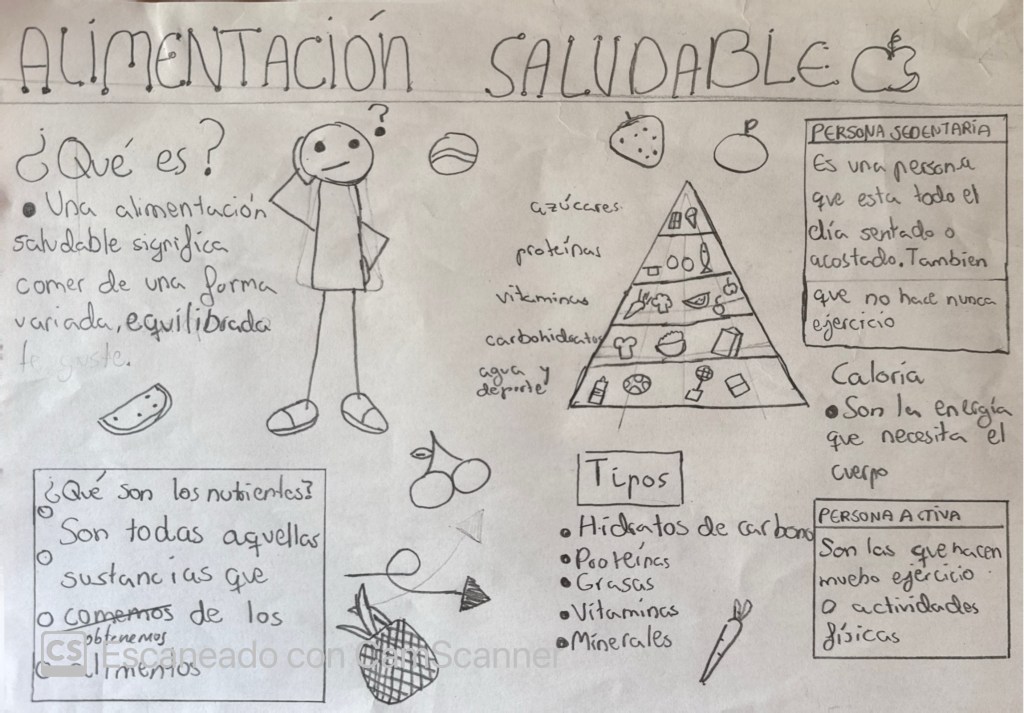 ALIMENTACIÓN SALUDABLE
¿Qué es?
?
• Una alimentación
saludable significa
comer de una forma
variada, equilibrada
te guste.
azúcares
proteínas
vitaminas
carbohidratos
agua y
deporte
PERSONA SEDENTARIA
Es una persona
que esta todo el
día sentado o
acostado. Tambien
que no hace nunca
ejercicio
Caloría
• Son la energía
que necesita el
cuerpo
¿Qué son los nutrientes?
Son todas aquellas
sustancias que
comemos de los
obtenemos
alimentos
Tipos
• Hidratos de carbono
• Proteínas
• Grasas
• Vitaminas
• Minerales
PERSONA ACTIVA
Son las que hacen
mucho ejercicio
o actividades
físicas
CS Escaneado con CamScanner